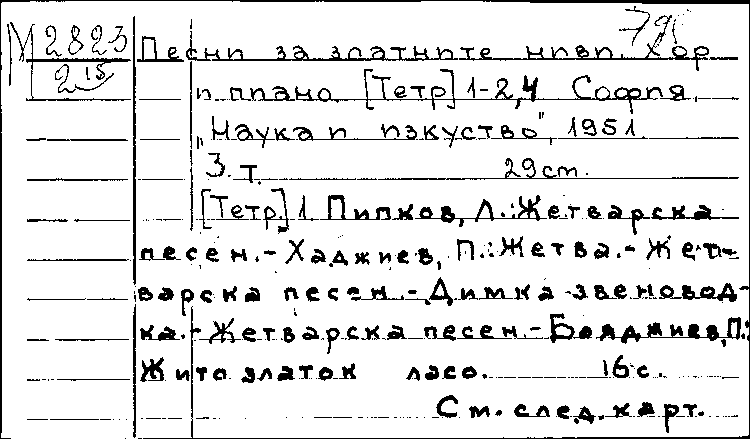 М 2823
2 15
Песни за златните ниви. Хор
и пиано. [Тетр] 1-2,4 София,
"Наука и изкуство", 1951.
3. т. 29 cm.
[Тетр.] 1. Пипков, Л.: Жетварска
песен.- Хаджиев, П.: Жетва.- Жет-
варска песен.- Димка звеновод-
ка.- Жетварска песен.- Бояджиев, П.:
Жито златок ласо. 16 с.
См. след. карт.